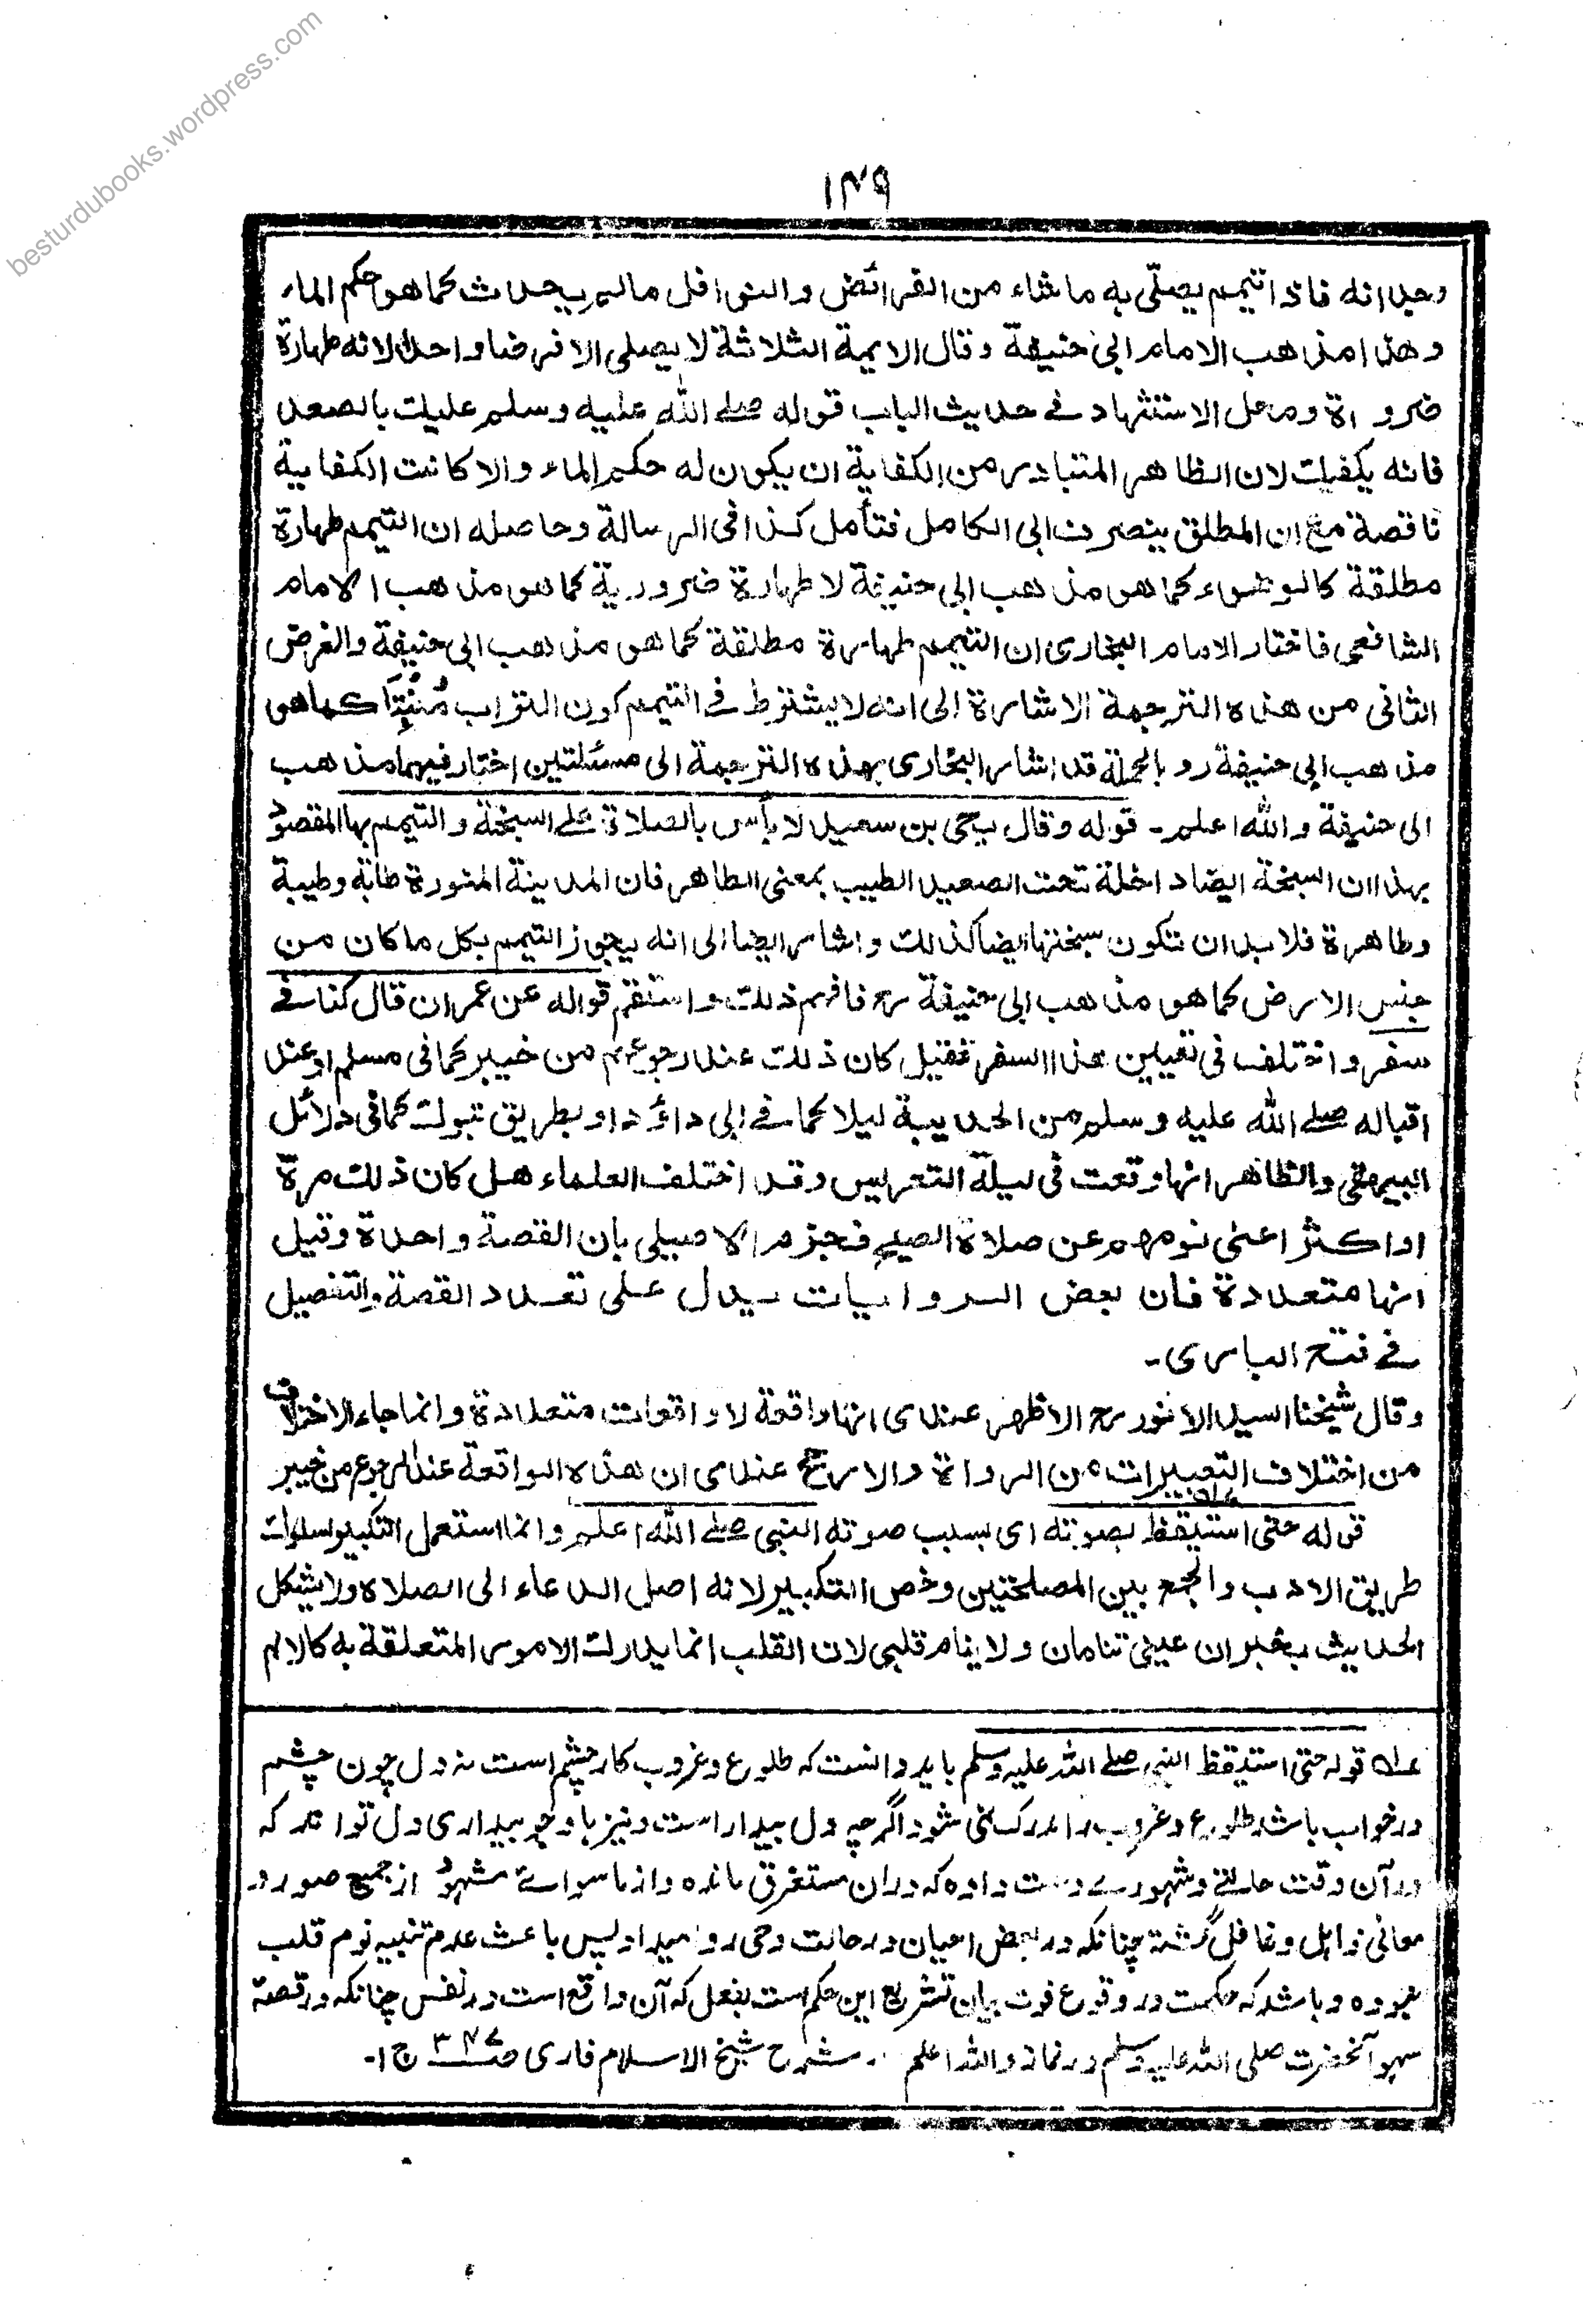 besturdubooks.wordpress.com
١٤٩
وجدانه فاذا تيمم يصلّى به ما شاء من الفرائض والنوافل مالم يحدث كما هو حكم الماء
وهذا مذهب الامام ابى حنيفة وقال الايمة الثلاثة لا يصلى الا فرضا واحدا لانه طهارة
ضرورة ومحل الاستشهاد فے حديث الباب قوله صلے الله عليه وسلم عليك بالصعيد
فانه يكفيك لان الظاهر المتبادر من الكفاية ان يكون له حكم الماء والا كانت الكفاية
ناقصة مع ان المطلق ينصرف الى الكامل فتأمل كذا فى الرسالة وحاصله ان التيمم طهارة
مطلقة كالوضوء كما هو مذهب ابى حنيفة لا طهارة ضرورية كما هو مذهب الامام
الشافعى فاختار الامام البخارى ان التيمم طهارة مطلقة كما هو مذهب ابى حنيفة والغرض
الثانى من هذه الترجمة الاشارة الى انه لا يشترط فے التيمم كون التراب مُنْبِتًا كما هو
مذهب ابى حنيفة رو بالجملة قد اشار البخارى بهذه الترجمة الى مسئلتين اختار فيهما مذهب
ابى حنيفة والله اعلم۔ قوله وقال يحيى بن سعيد لا بأس بالصلاة علے السبخة والتيمم بها المقصود
بهذا ان السبخة ايضا داخلة تحت الصعيد الطيب بمعنى الطاهر فان المدينة المنورة طابة وطيبة
وطاهرة فلا بد ان تكون سبختها ايضا كذلك واشار ايضا الى انه يجوز التيمم بكل ما كان من
جنس الارض كما هو مذهب ابى حنيفة رح فافهم ذلك واستقم قوله عن عمران قال كنا فے
سفر واختلف فى تعيين هذا السفر فقيل كان ذلك عند رجوعهم من خيبر كما فى مسلم او عند
اقباله صلے الله عليه وسلم من الحديبية ليلا كما فے ابى داؤد او بطريق تبوك كما فى دلائل
البيهقى والظاهر انها وقعت فى ليلة التعريس وقد اختلف العلماء هل كان ذلك مرة
او اكثر اعنى نومهم عن صلاة الصبح فجزم الاصيلى بان القصة واحدة وقيل
انها متعددة فان بعض الروايات يدل على تعدد القصة والتفصيل
فے فتح البارى۔
وقال شيخنا السيد الانور رح الاظهر عندى انها واقعة لا واقعات متعددة وانما جاء الاختلاف
من اختلاف التعبيرات من الرواة والارجح عندى ان هذه الواقعة عند الرجوع من خيبر
قوله حتى استيقظ بصوته اى بسبب صوته النبى صلے الله اعلم وانما استعمل التكبير لسلوك
طريق الادب والجمع بين المصلحتين وخص التكبير لانه اصل الدعاء الى الصلاة ولا يشكل
الحديث بخبر ان عينى تنامان ولا ينام قلبى لان القلب انما يدرك الامور المتعلقة به كالالم
عــلــه قوله حتى استيقظ النبى صلے الله عليه وسلم باید دانست که طلوع وغروب کار چشم است نه دل چون چشم
در خواب باشد طلوع وغروب را مدرک نمی شود اگرچه دل بیدار است ونیز با وجود بیداری دل تواند که
در آن وقت حالتے وشهودے دست داده که دران مستغرق مانده واز ما سوائے مشهود از جمیع صور و
معانی ذاهل وغافل گشته چنانکه در بعض احیان در حالت وحی رو میداد پس باعث عدم تنبیه نوم قلب
نبوده وباشد که حکمت در وقوع فوت بیان تشریع این حکم است بفعل که آن واقع است در نفس چنانکه در قصهٔ
سهو آنحضرت صلی الله علیه وسلم در نماز والله اعلم ۔۔ شرح شیخ الاسلام فارى ص٣٤٧ ج ١۔